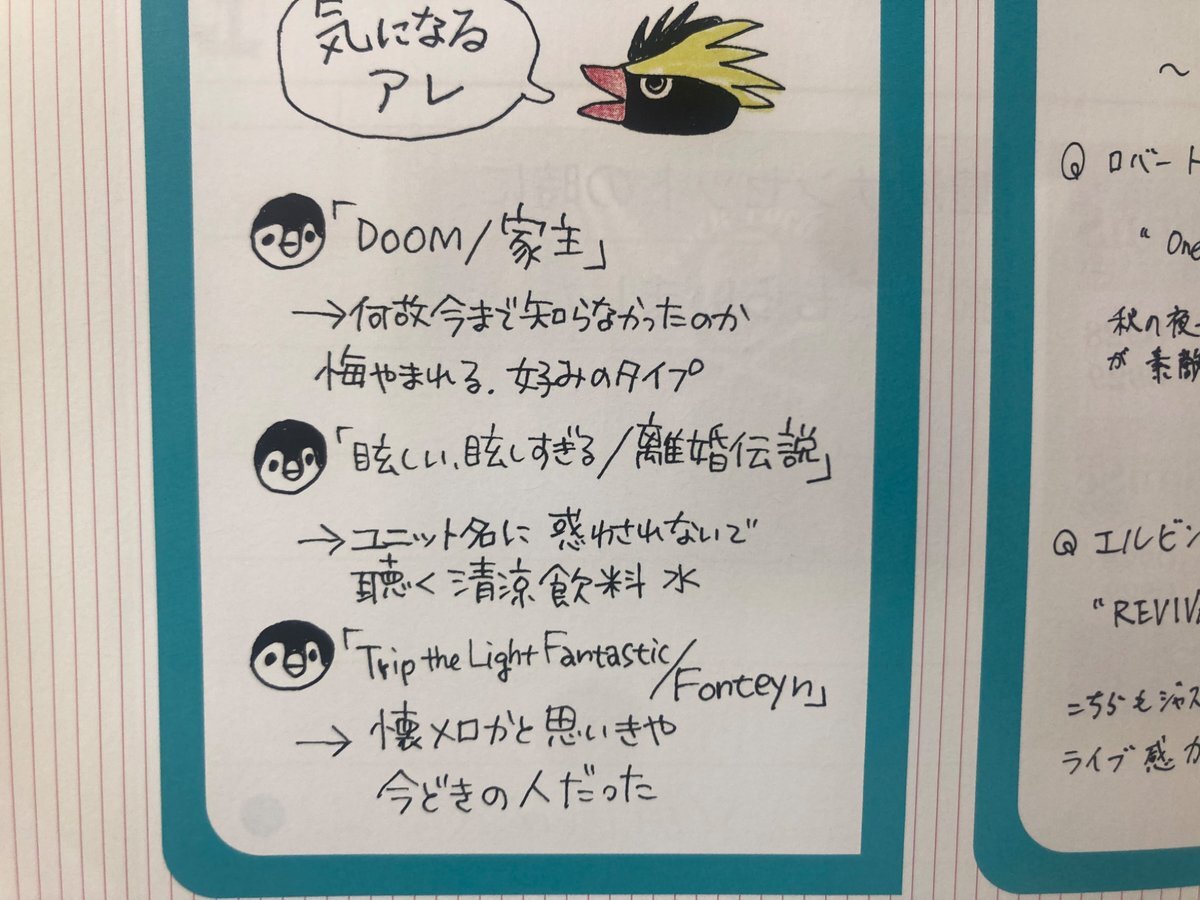 気になる
アレ
「DOOM/家主」
→何故今まで知らなかったのか
悔やまれる.好みのタイプ
「眩しい、眩しすぎる/離婚伝説」
→ユニット名に惑わされないで
聴く清涼飲料水
「Trip the Light Fantastic/
Fonteyn」
→懐メロかと思いきや
今どきの人だった
〜
Q ロバート
“One
秋の夜
が素敵
Q エルビン
“REVIV
こちらもジャズ
ライブ感が